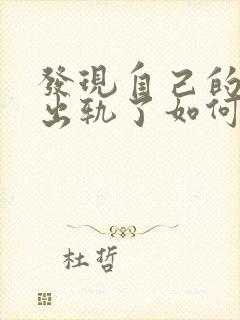 發現自己的
出軌了如何
杜哲